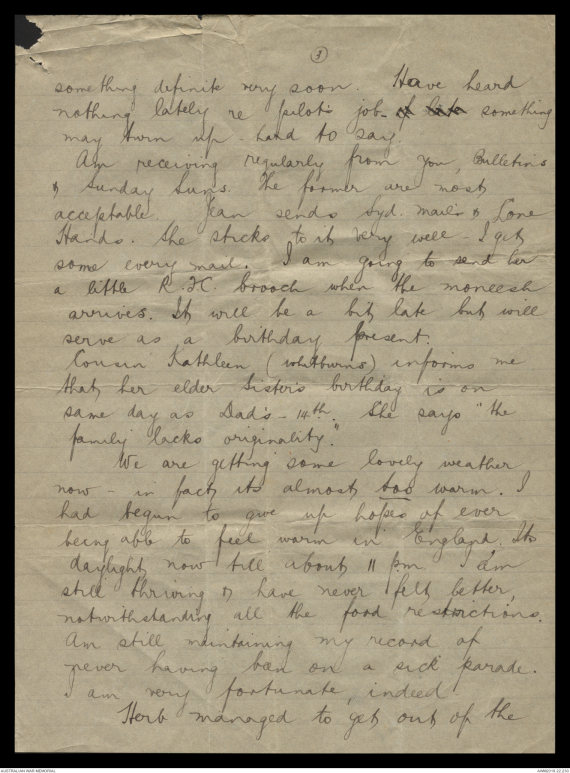 3
something definite very soon. Have heard
nothing lately re pilot's job - if late something
may turn up - hard to say.
Am receiving regularly from you, Bulletins
& Sunday Suns. The former are most
acceptable. Jean sends Syd. Mail's & Lone
Hands. She sticks to it very well - I get
some every mail. I am going to send her
a little R.F.C. brooch when the moneesh
arrives. It will be a bit late but will
serve as a birthday present.
Cousin Kathleen (Whitburns) informs me
that her elder sister's birthday is on
same day as Dad's - 14th. She says "the
family lacks originality."
We are getting some lovely weather
now - in fact its almost too warm. I
had begun to give up hopes of ever
being able to feel warm in England. Its
daylight now till about 11 p.m. I am
still thriving & have never felt better,
notwithstanding all the food restrictions.
Am still maintaining my record of
never having been on a sick parade.
I am very fortunate, indeed.
Herb managed to get out of the
AUSTRALIAN WAR MEMORIAL